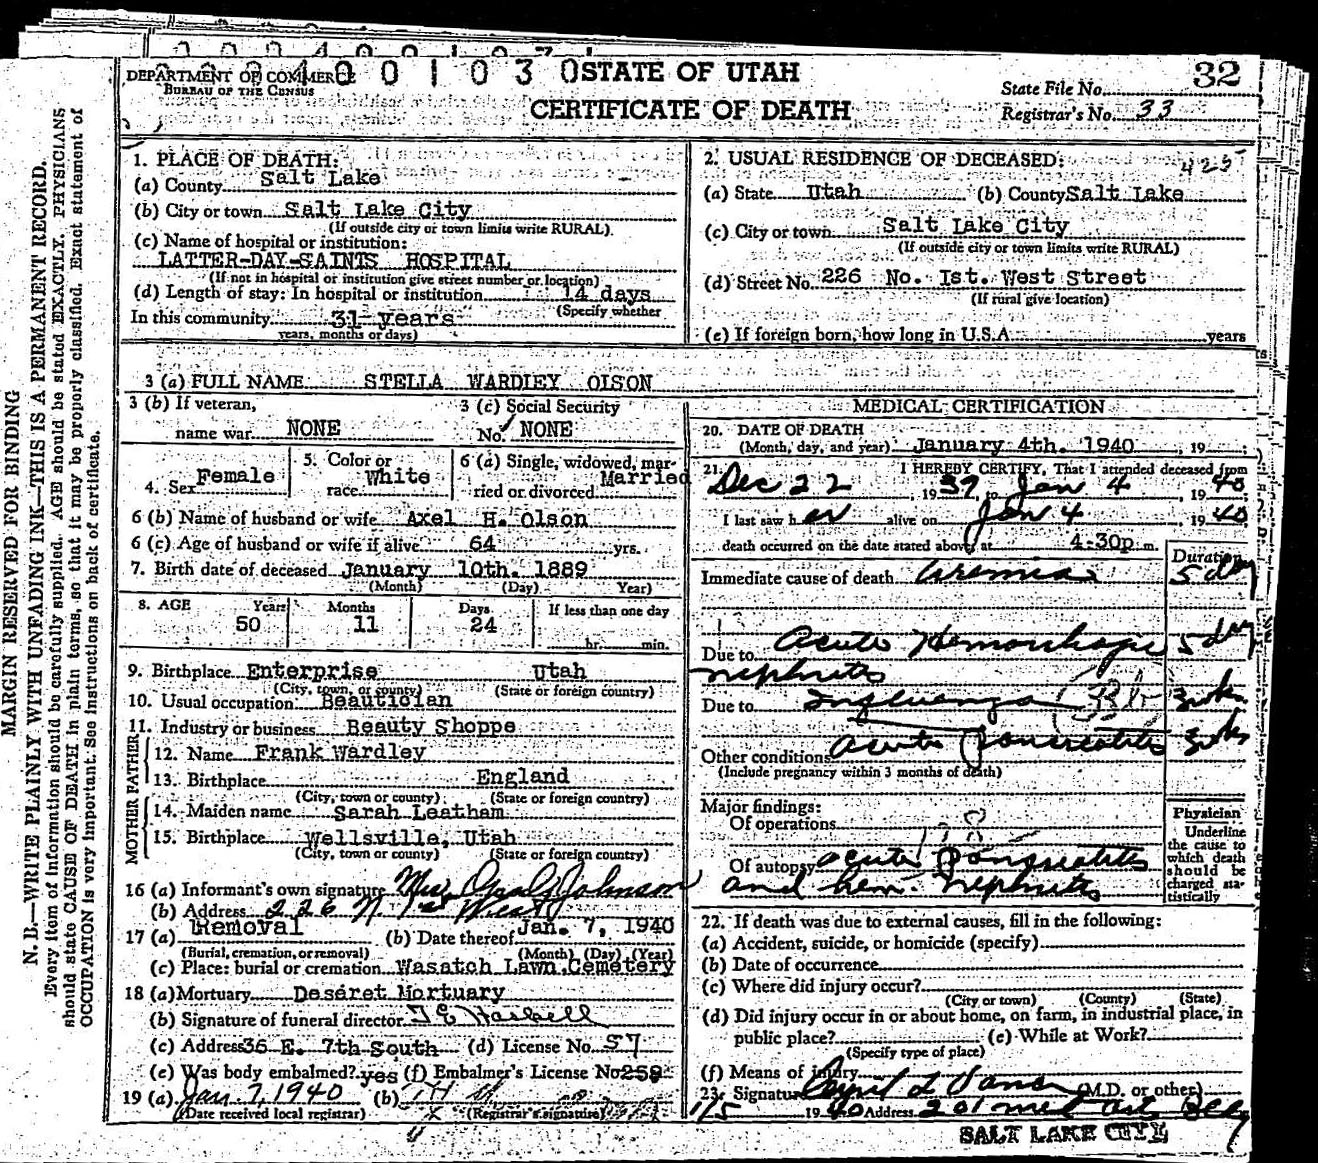 DEPARTMENT OF COMMERCE
BUREAU OF THE CENSUS
0 0 1 0 3 0
STATE OF UTAH
CERTIFICATE OF DEATH
State File No. 32
Registrar's No. 33
MARGIN RESERVED FOR BINDING
N. B.—WRITE PLAINLY WITH UNFADING INK—THIS IS A PERMANENT RECORD.
Every item of information should be carefully supplied. AGE should be stated EXACTLY. PHYSICIANS
should state CAUSE OF DEATH in plain terms, so that it may be properly classified. Exact statement of
OCCUPATION is very important. See instructions on back of certificate.
1. PLACE OF DEATH:
(a) County Salt Lake
(b) City or town Salt Lake City
(If outside city or town limits write RURAL)
(c) Name of hospital or institution:
LATTER-DAY-SAINTS HOSPITAL
(If not in hospital or institution give street number or location)
(d) Length of stay: In hospital or institution 14 days
(Specify whether
In this community 31 years
years, months or days)
2. USUAL RESIDENCE OF DECEASED: 425
(a) State Utah (b) County Salt Lake
(c) City or town Salt Lake City
(If outside city or town limits write RURAL)
(d) Street No. 226 No. Ist. West Street
(If rural give location)
(e) If foreign born, how long in U.S.A. years
3 (a) FULL NAME STELLA WARDLEY OLSON
3 (b) If veteran,
name war NONE
3 (c) Social Security
No. NONE
4. Sex Female
5. Color or
race White
6 (a) Single, widowed, mar-
ried or divorced Married
6 (b) Name of husband or wife Axel H. Olson
6 (c) Age of husband or wife if alive 64 yrs.
7. Birth date of deceased January 10th. 1889
(Month) (Day) Year)
8. AGE Years Months Days If less than one day
50 11 24 hr. min.
9. Birthplace Enterprise Utah
(City, town, or county) (State or foreign country)
10. Usual occupation Beautician
11. Industry or business Beauty Shoppe
FATHER
12. Name Frank Wardley
13. Birthplace England
(City, town or county) (State or foreign country)
MOTHER
14. Maiden name Sarah Leatham
15. Birthplace Wellsville, Utah
(City, town or county) (State or foreign country)
16 (a) Informant's own signature Mrs. Opal Johnson
(b) Address 226 N 1st West
17 (a) Removal (b) Date thereof Jan. 7, 1940
(Burial, cremation, or removal) (Month) (Day) (Year)
(c) Place: burial or cremation Wasatch Lawn Cemetery
18 (a) Mortuary Deseret Mortuary
(b) Signature of funeral director
(c) Address 36 E. 7th South (d) License No. 57
(e) Was body embalmed? yes (f) Embalmer's License No 258
19 (a) Jan 7, 1940 (b)
(Date received local registrar) (Registrar's signature)
MEDICAL CERTIFICATION
20. DATE OF DEATH
(Month, day, and year) January 4th. 1940, 19
21. I HEREBY CERTIFY, That I attended deceased from
Dec 22, 1939, to Jan 4, 1940
I last saw her alive on Jan 4, 1940
death occurred on the date stated above, at 4-30p m.
Duration
Immediate cause of death Uremia 5 day
Due to Acute Hemorrhage 5 day
nephritis
Due to Influenza 3 wks
Other conditions acute Pancreatitis 3 wks
(Include pregnancy within 3 months of death)
Major findings:
Of operations
Of autopsy acute Pancreatitis
and hem. nephritis
Physician
Underline
the cause to
which death
should be
charged sta-
tistically
22. If death was due to external causes, fill in the following:
(a) Accident, suicide, or homicide (specify)
(b) Date of occurrence
(c) Where did injury occur?
(City or town) (County) (State)
(d) Did injury occur in or about home, on farm, in industrial place, in
public place? (e) While at Work?
(Specify type of place)
(f) Means of injury
23. Signature (M.D. or other)
1/5 1940 Address 201 Med Arts Bldg
SALT LAKE CITY